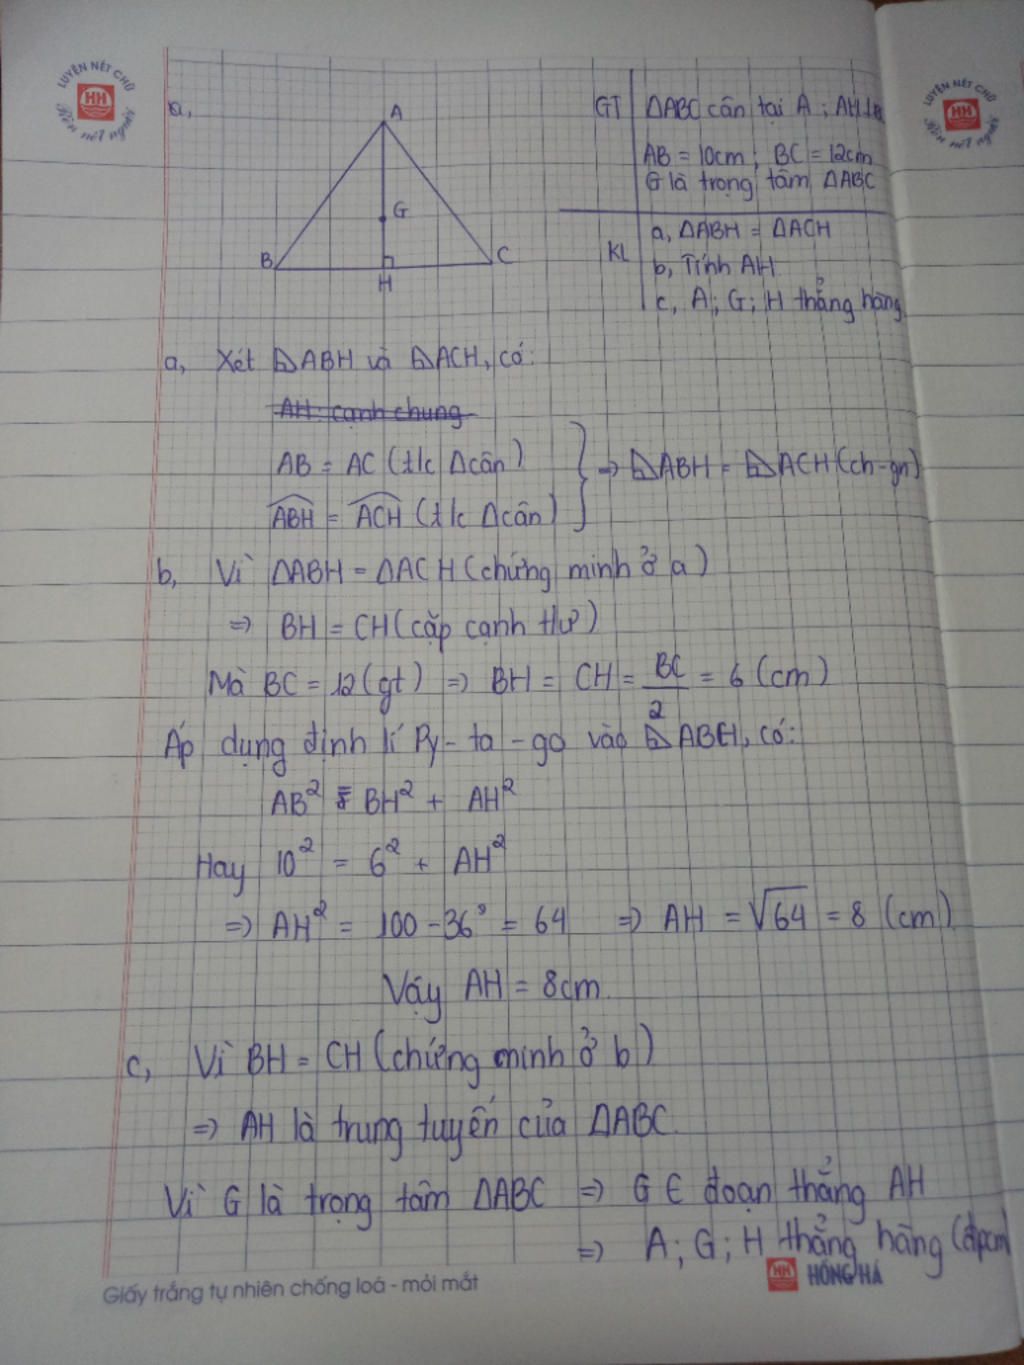 LUYỆN NÉT CHỮ
HH
Rèn nết người
LUYỆN NÉT CHỮ
HH
Rèn nết người
a,
A
G
B
C
H
GT ΔABC cân tại A; AH⊥
AB = 10cm; BC = 12cm
G là trọng tâm ΔABC
KL a, ΔABH = ΔACH
b, Tính AH
c, A; G; H thẳng hàng
a, Xét ⊿ABH và ⊿ACH, có:
AH: cạnh chung
AB = AC (t/c Δcân)
ABH = ACH (t/c Δcân) } => ⊿ABH = ⊿ACH (ch-gn)
b, Vì ΔABH = ΔACH (chứng minh ở a)
=> BH = CH (cặp cạnh tlư)
Mà BC = 12 (gt) => BH = CH = BC/2 = 6 (cm)
Áp dụng định lí Py-ta-go vào ⊿ABH, có:
AB² = BH² + AH²
Hay 10² = 6² + AH²
=> AH² = 100 - 36 = 64 => AH = √64 = 8 (cm)
Vậy AH = 8cm.
c, Vì BH = CH (chứng minh ở b)
=> AH là trung tuyến của ΔABC.
Vì G là trọng tâm ΔABC => G ∈ đoạn thẳng AH
=> A; G; H thẳng hàng (đpcm)
HH HỒNG HÀ
Giấy trắng tự nhiên chống loá - mỏi mắt